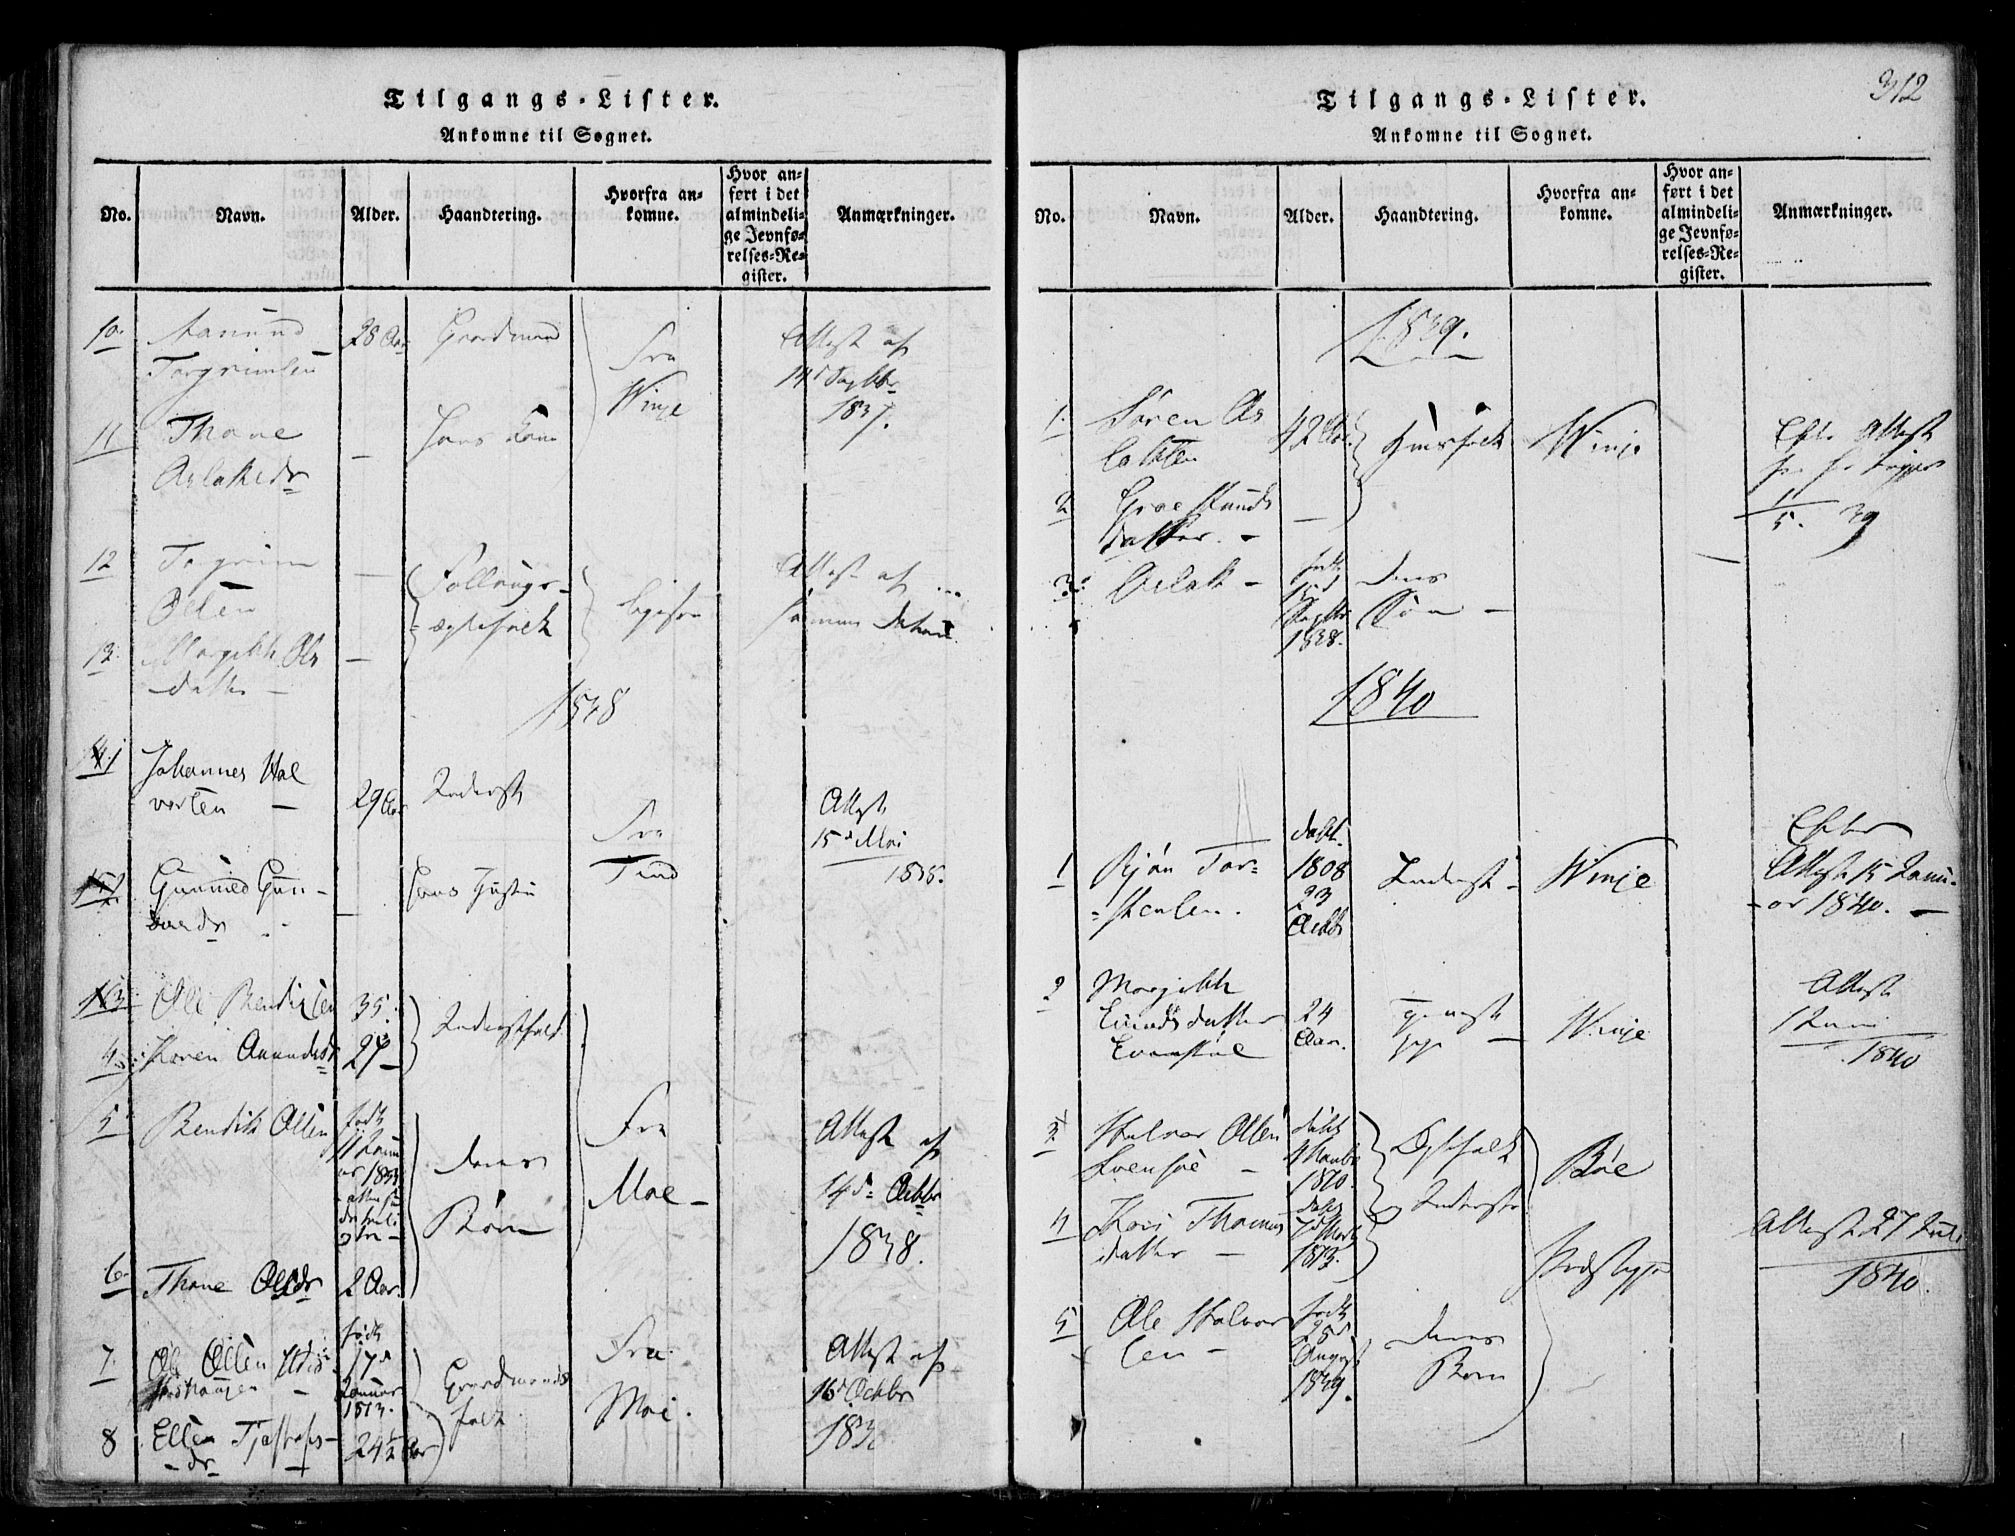 Tilgangs-Lister.
Ankomne til Sognet.
No.
Navn.
Alder.
Haandtering.
Hvorfra an-
komne.
Hvor an-
ført i det
almindeli-
ge Jevnfø-
relses-Re-
gister.
Anmærkninger.
10.
Aanund
Torgrimsen
28 Aar
Gaardmand
Fra
Winje
Attest af
14d Septbr
1837.
11
Thone
Aslaksdr
—
Hans Kone
12
Torgrim
Olsen
—
Follougs-
ægtefolk
Attest af
samme Datum
13.
Margith Ols
datter —
—
1838
1
Johannes Hal
vorsen —
29 Aar
Inderst
Fra
Tind
Attest
15d Mai
1838.
2
Gunnild Gun-
dr
—
Hans Hustru
3
Ole Bendixsen
35.
Inderstfolk
4
Karen Aanundsdr
27 —
5
Bendik Olsen
født
11 Janu
ar 1833
Deres
Børn
Fra
Moe —
Attest af
14d Octbr
1838.
6.
Thone Olsdr
2 Aar
7.
Ole Olsen
født
17d
Januar
1813.
Gaardmands
folk
Fra
Moe.
Attest af
16d Octbr
183
8
Ellen
— dr —
24½ Aar
312
Tilgangs-Lister.
Ankomne til Sognet.
No.
Navn.
Alder.
Haandtering.
Hvorfra an-
komne.
Hvor an-
ført i det
almindeli-
ge Jevnfø-
relses-Re-
gister.
Anmærkninger.
1839.
1.
Søren As
laksen
42 Aar
Huusfolk
Winje
Efter Attest
1
5. 39
2
Groe Knuds
datter. —
—
3.
Aslak —
født
Septbr
1838.
Deres
Søn —
1840
1
Bjøn Tor-
-stensen.
døbt
1808
23
Octbr
Inderst —
Winje
Efter
Attest 15 Janu-
-ar 1840. —
2
Margith
Eivindsdatter
24
Aar.
Tjeneste
pige —
Winje
Attest
1 Juni
1840
3
Halvor Olsen
—
døbt
4 Novbr
1810.
Ægtefolk
Inderster
Bøe
Præstegjeld
Attest 27 Juli
1840.
4
Kari Thomas
datter —
døbt
7d Marts
1813.
5
Ole Halvor
sen —
født
25d
August
1839.
Deres
Barn